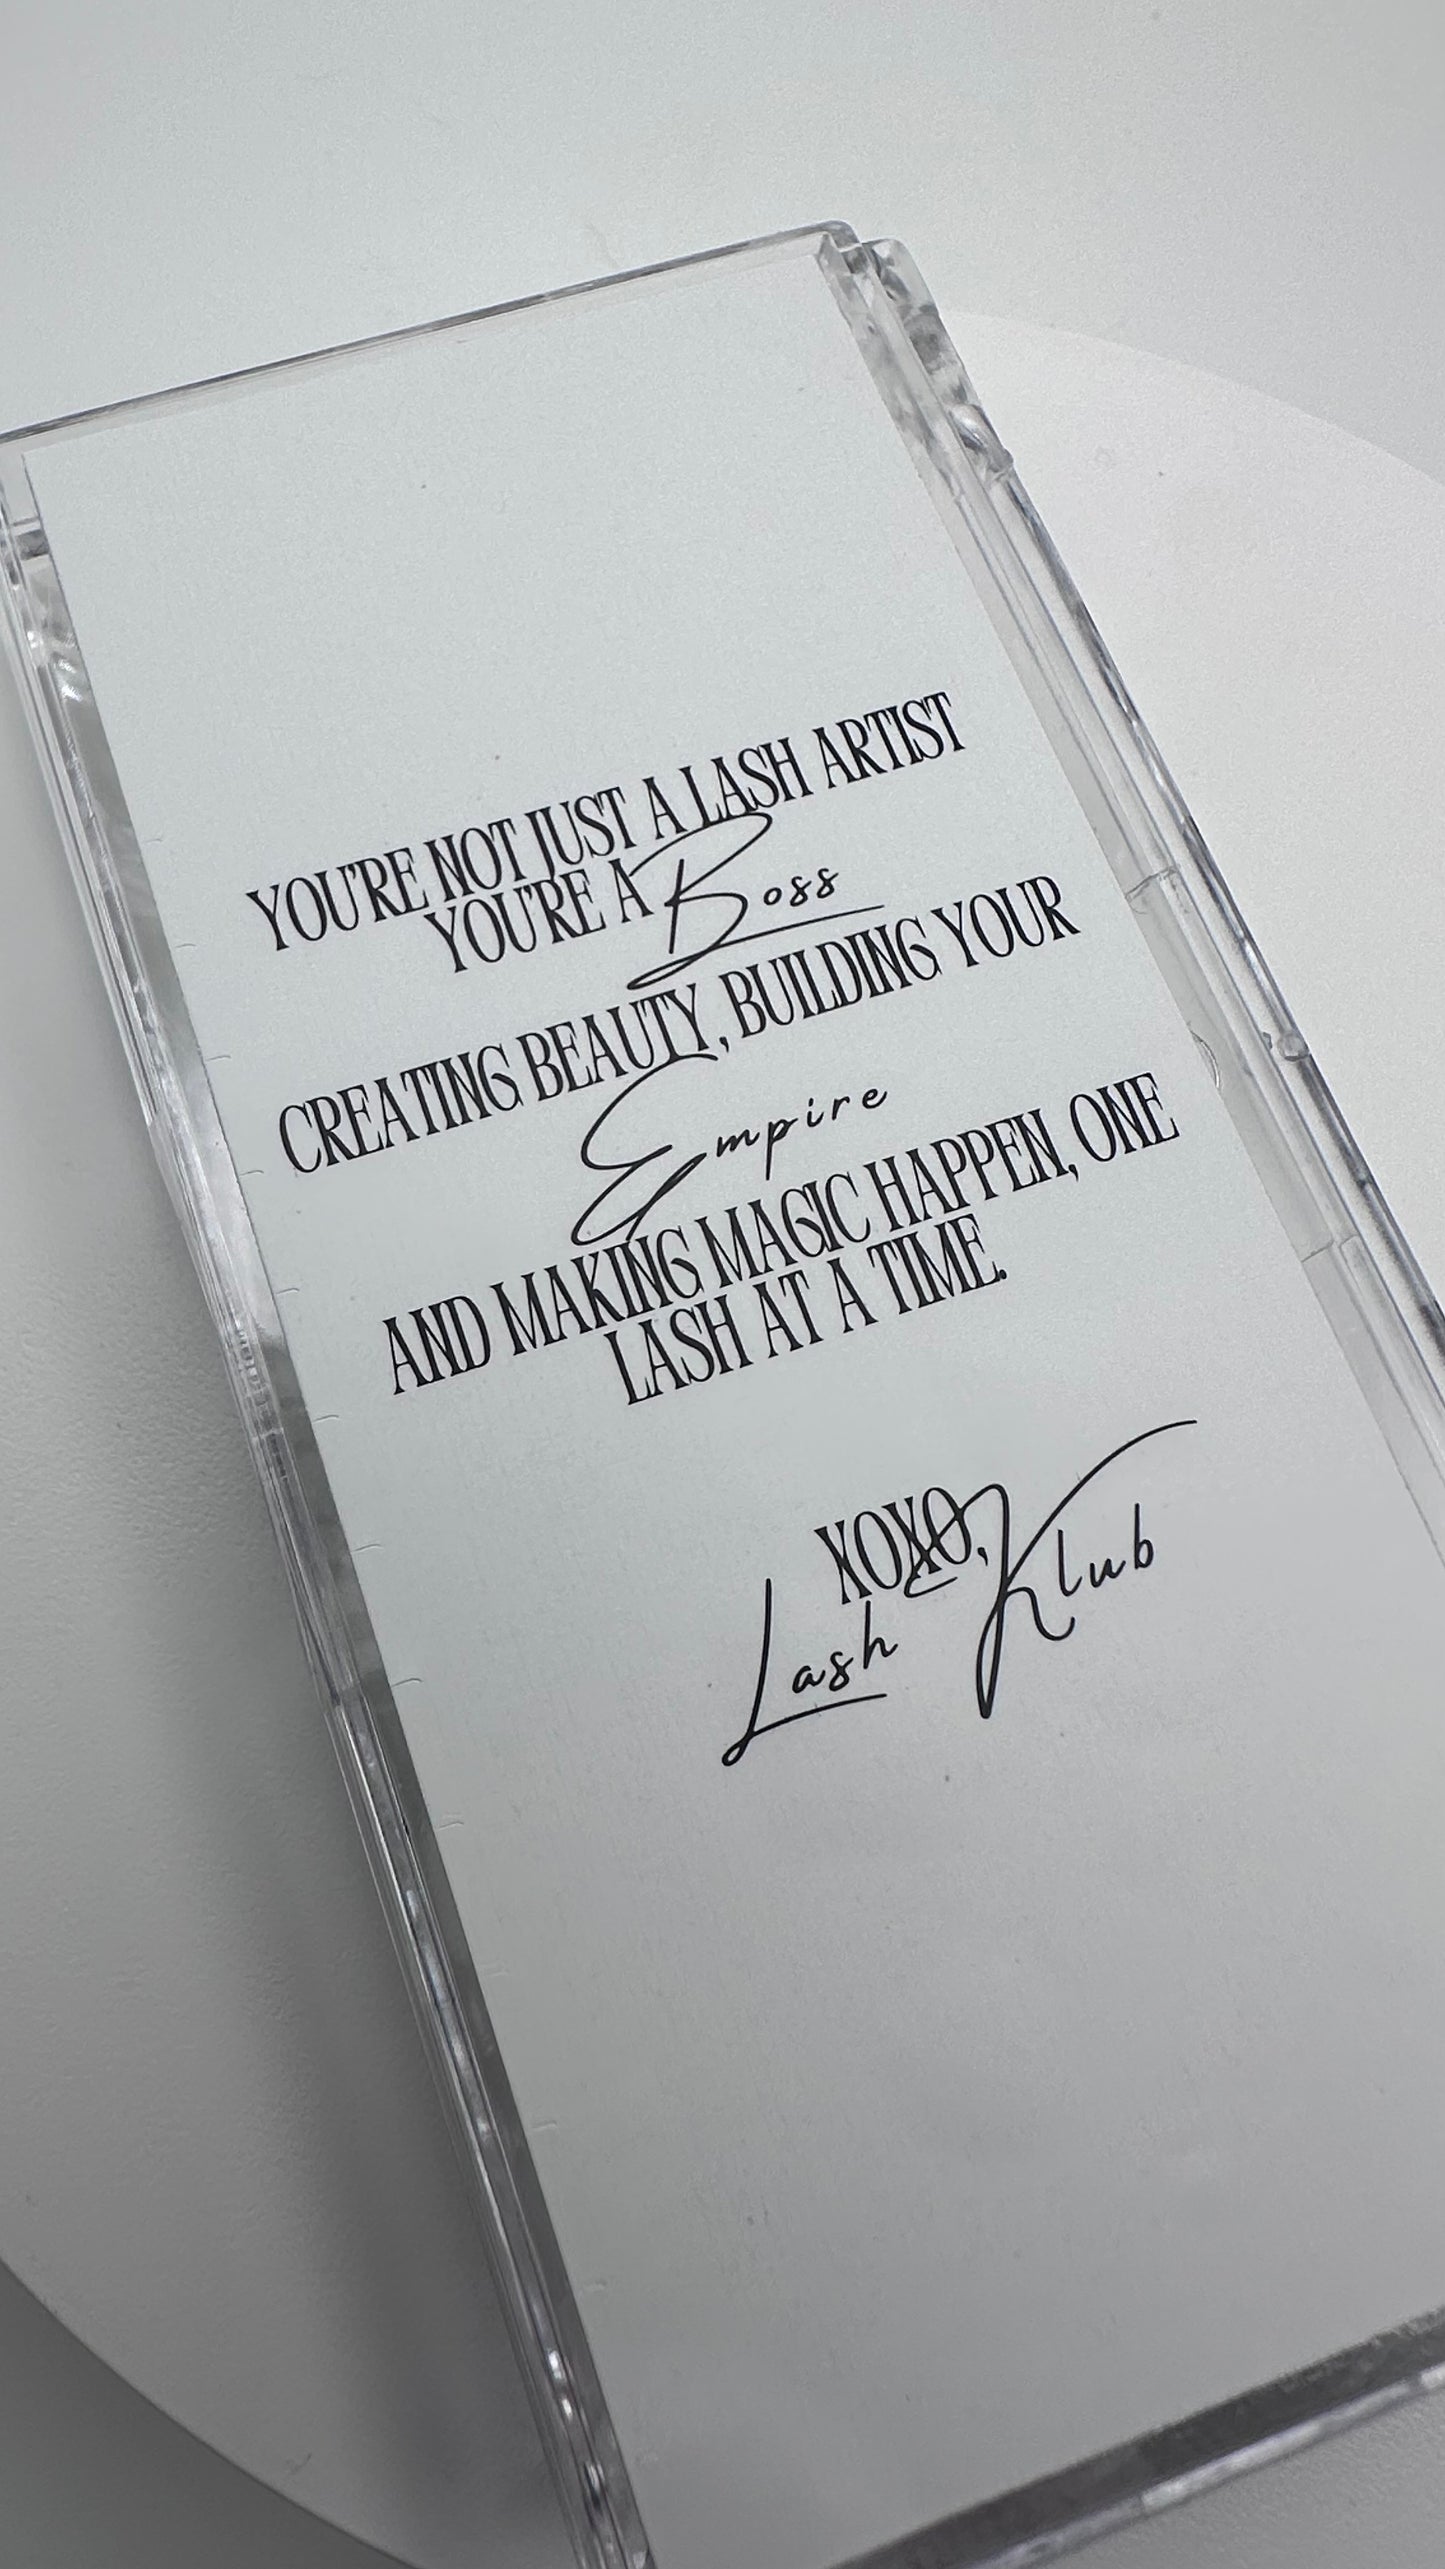 YOU'RE NOT JUST A LASH ARTIST
YOU'RE A Boss
CREATING BEAUTY, BUILDING YOUR
Empire
AND MAKING MAGIC HAPPEN, ONE
LASH AT A TIME.
XOXO,
Lash Klub